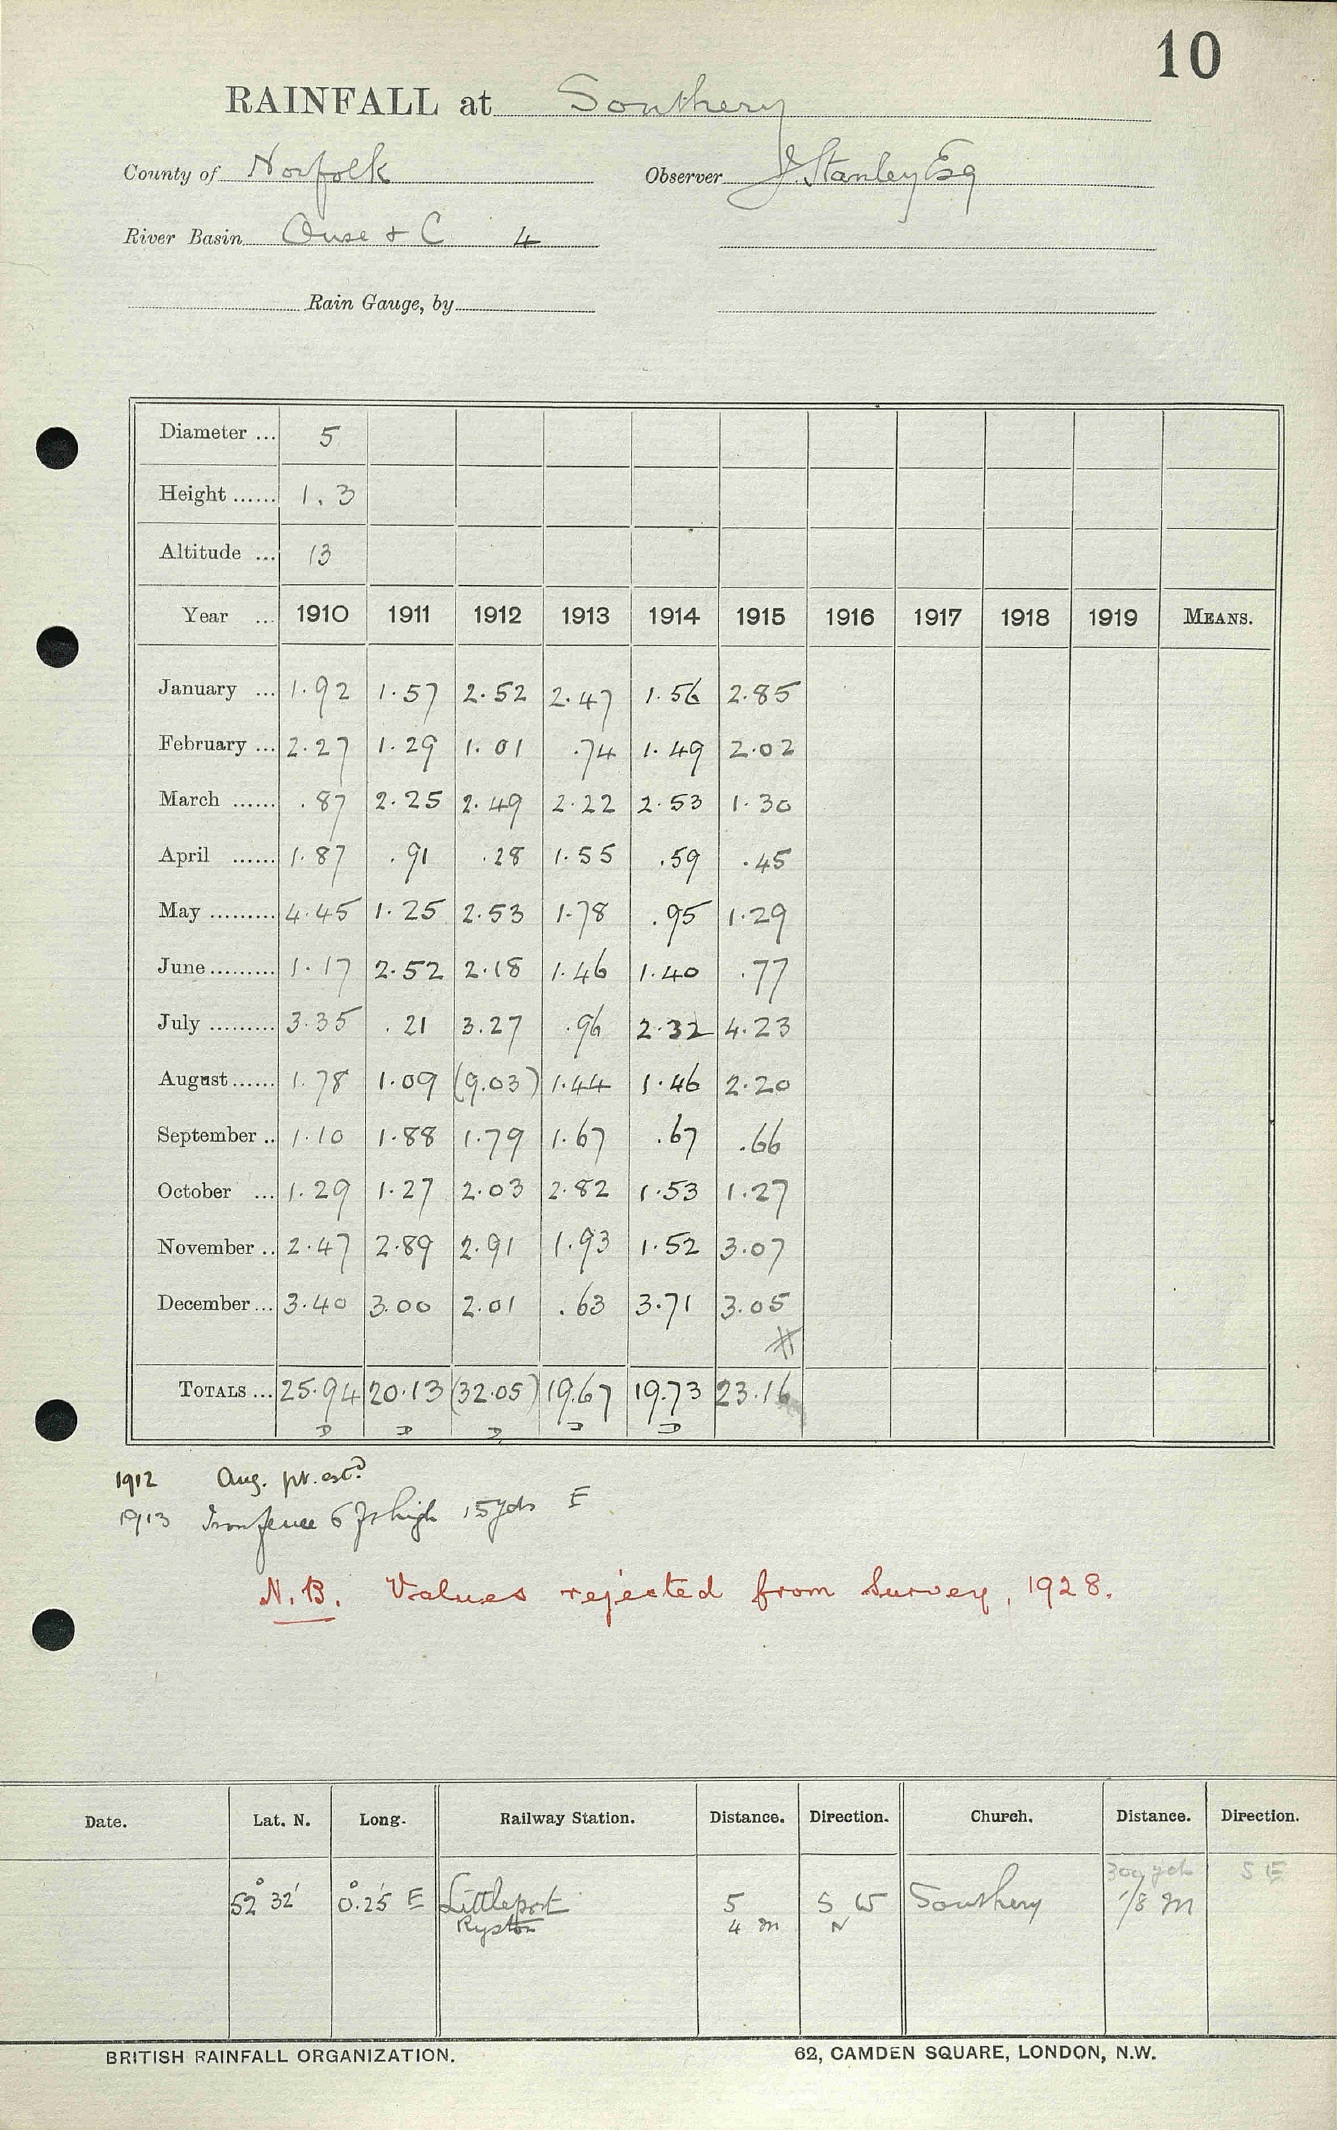 10
RAINFALL at Southery
County of Norfolk Observer J. Stanley Esq
River Basin Ouse + C 4
Rain Gauge, by
Diameter ... 5
Height ...... 1.3
Altitude ... 13
Year ... 1910 1911 1912 1913 1914 1915 1916 1917 1918 1919 MEANS.
January ... 1.92 1.57 2.52 2.47 1.56 2.85
February ... 2.27 1.29 1.01 .74 1.49 2.02
March ...... .87 2.25 2.49 2.22 2.53 1.30
April ...... 1.87 .91 .28 1.55 .59 .45
May ......... 4.45 1.25 2.53 1.78 .95 1.29
June ......... 1.17 2.52 2.18 1.46 1.40 .77
July ......... 3.35 .21 3.27 .96 2.32 4.23
August ...... 1.78 1.09 (9.03) 1.44 1.46 2.20
September .. 1.10 1.88 1.79 1.67 .67 .66
October ... 1.29 1.27 2.03 2.82 1.53 1.27
November .. 2.47 2.89 2.91 1.93 1.52 3.07
December ... 3.40 3.00 2.01 .63 3.71 3.05
TOTALS ... 25.94 20.13 (32.05) 19.67 19.73 23.16
D D D D D
1912 Aug. pt. estd
1913 Iron fence 6 ft high 15 yds E
N.B. Values rejected from Survey, 1928.
Date. Lat. N. Long. Railway Station. Distance. Direction. Church. Distance. Direction.
300 yds SE
52° 32' 0° 25' E Littleport 5 S W Southery 1/8 m
Ryston 4 m N
BRITISH RAINFALL ORGANIZATION. 62, CAMDEN SQUARE, LONDON, N.W.